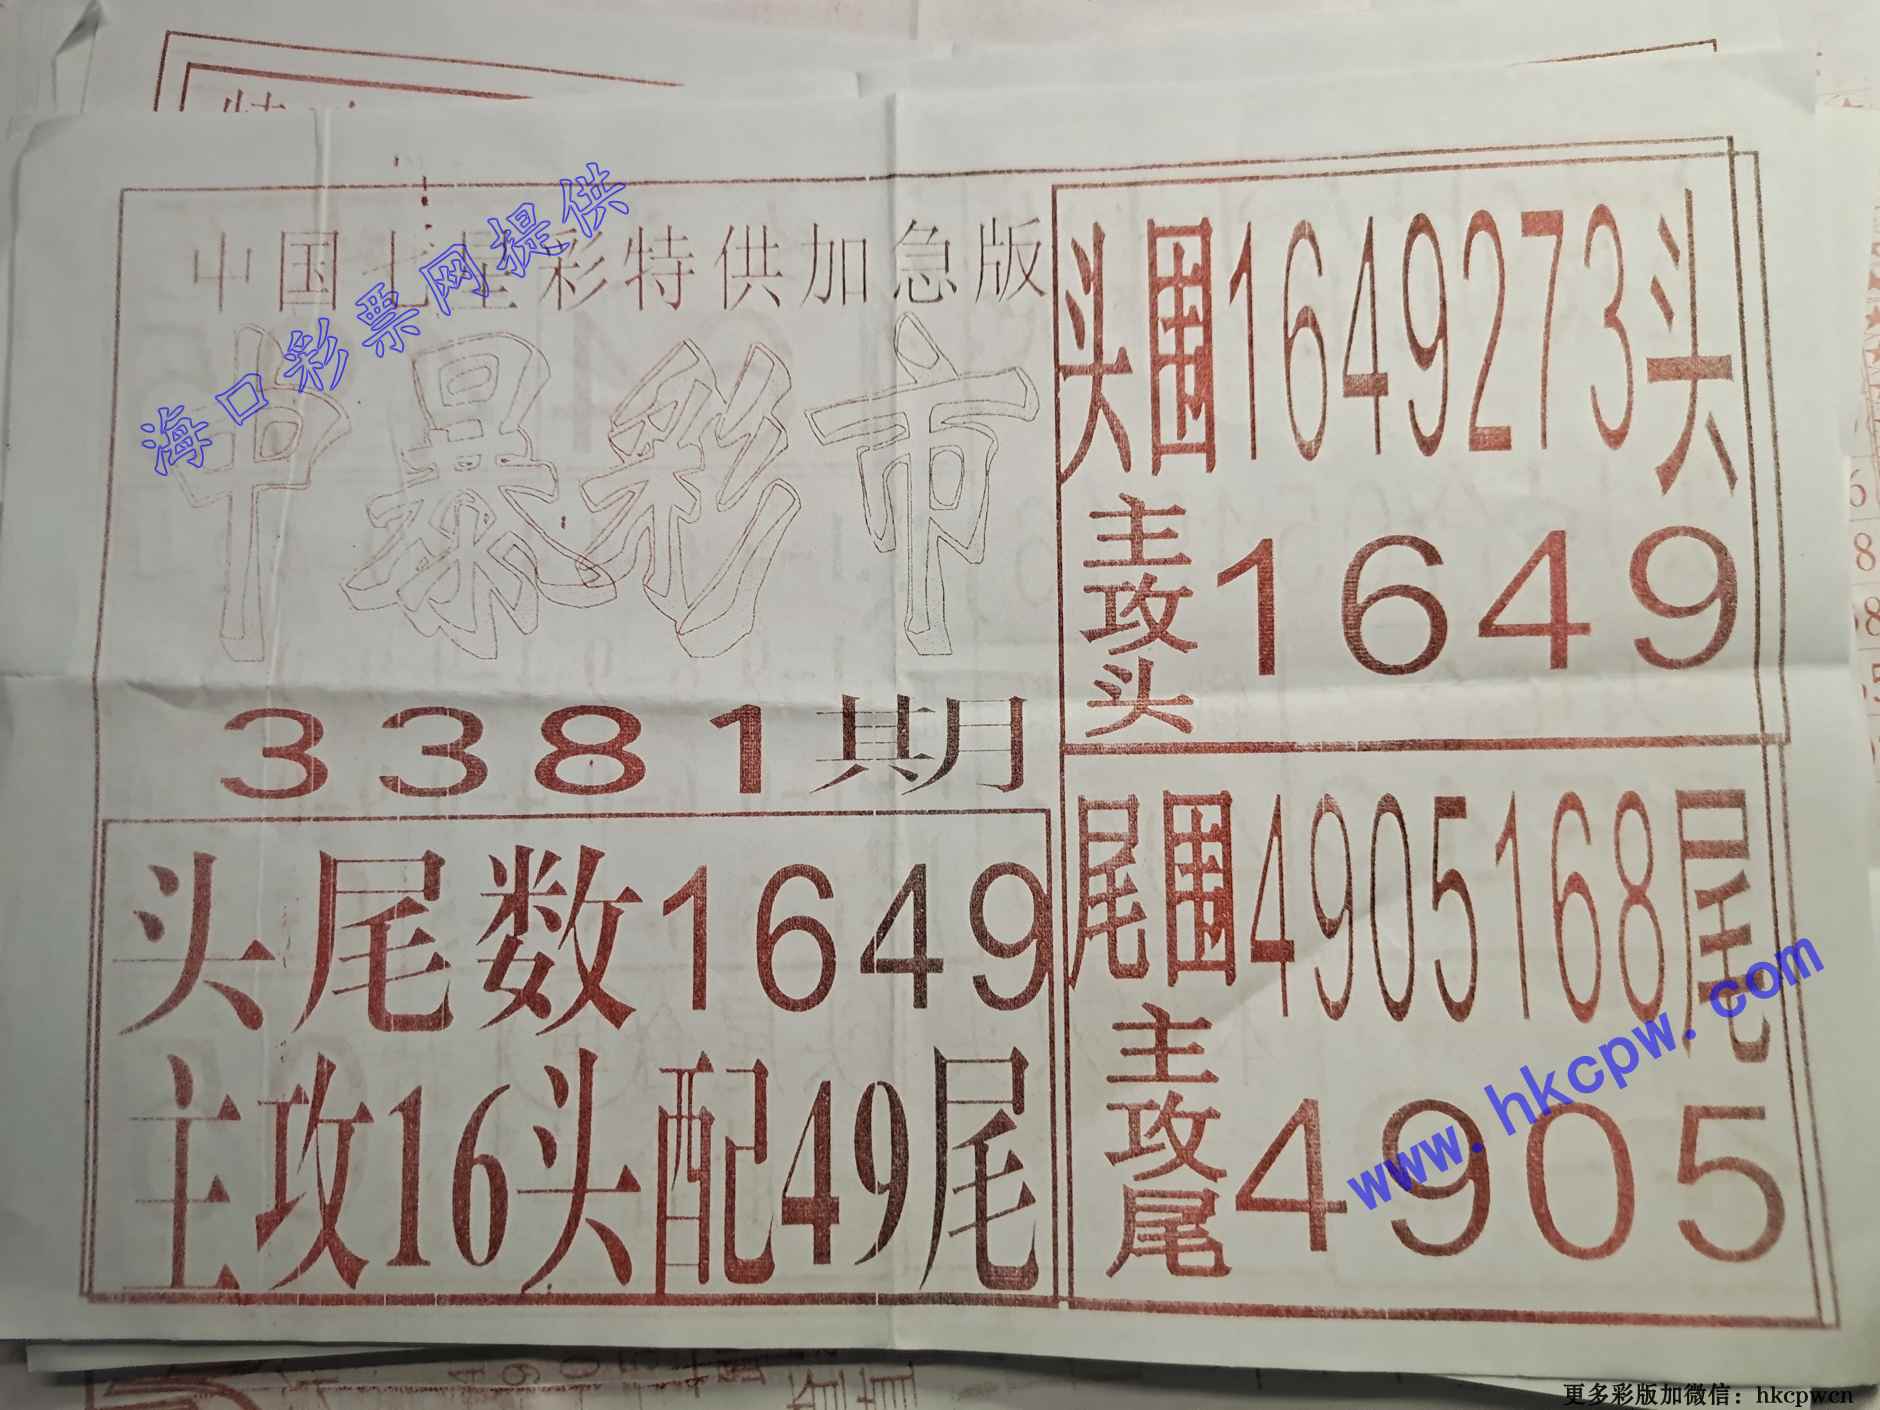 中国七星彩特供加急版
中暴彩市
3381期
头尾数1649
主攻16头配49尾
头围1649273头
主攻头1649
尾围4905168尾
主攻尾4905
海口彩票网提供
www.hkcpw.com
更多彩版加微信：hkcpwcn